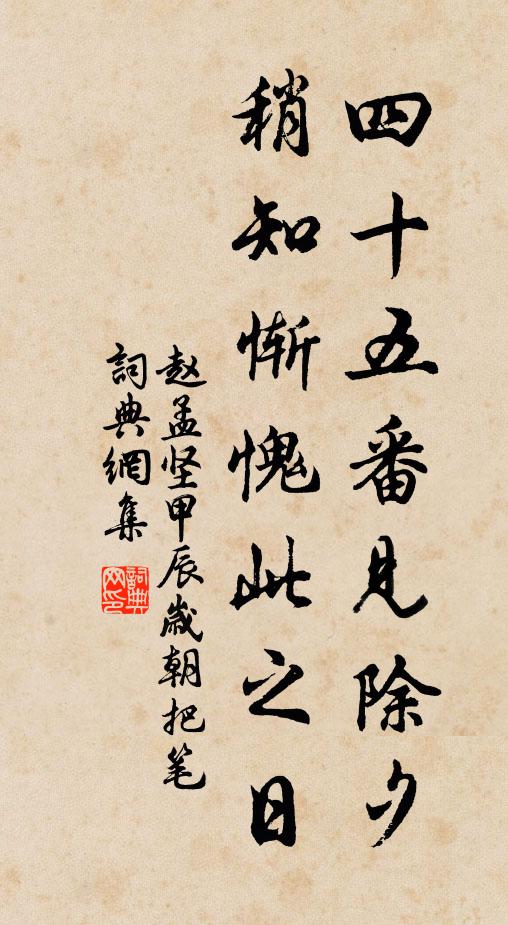 四十五番見除夕
稍知慚愧此之日
赵孟坚甲辰歲朝把笔
詞典網集
詞典网印